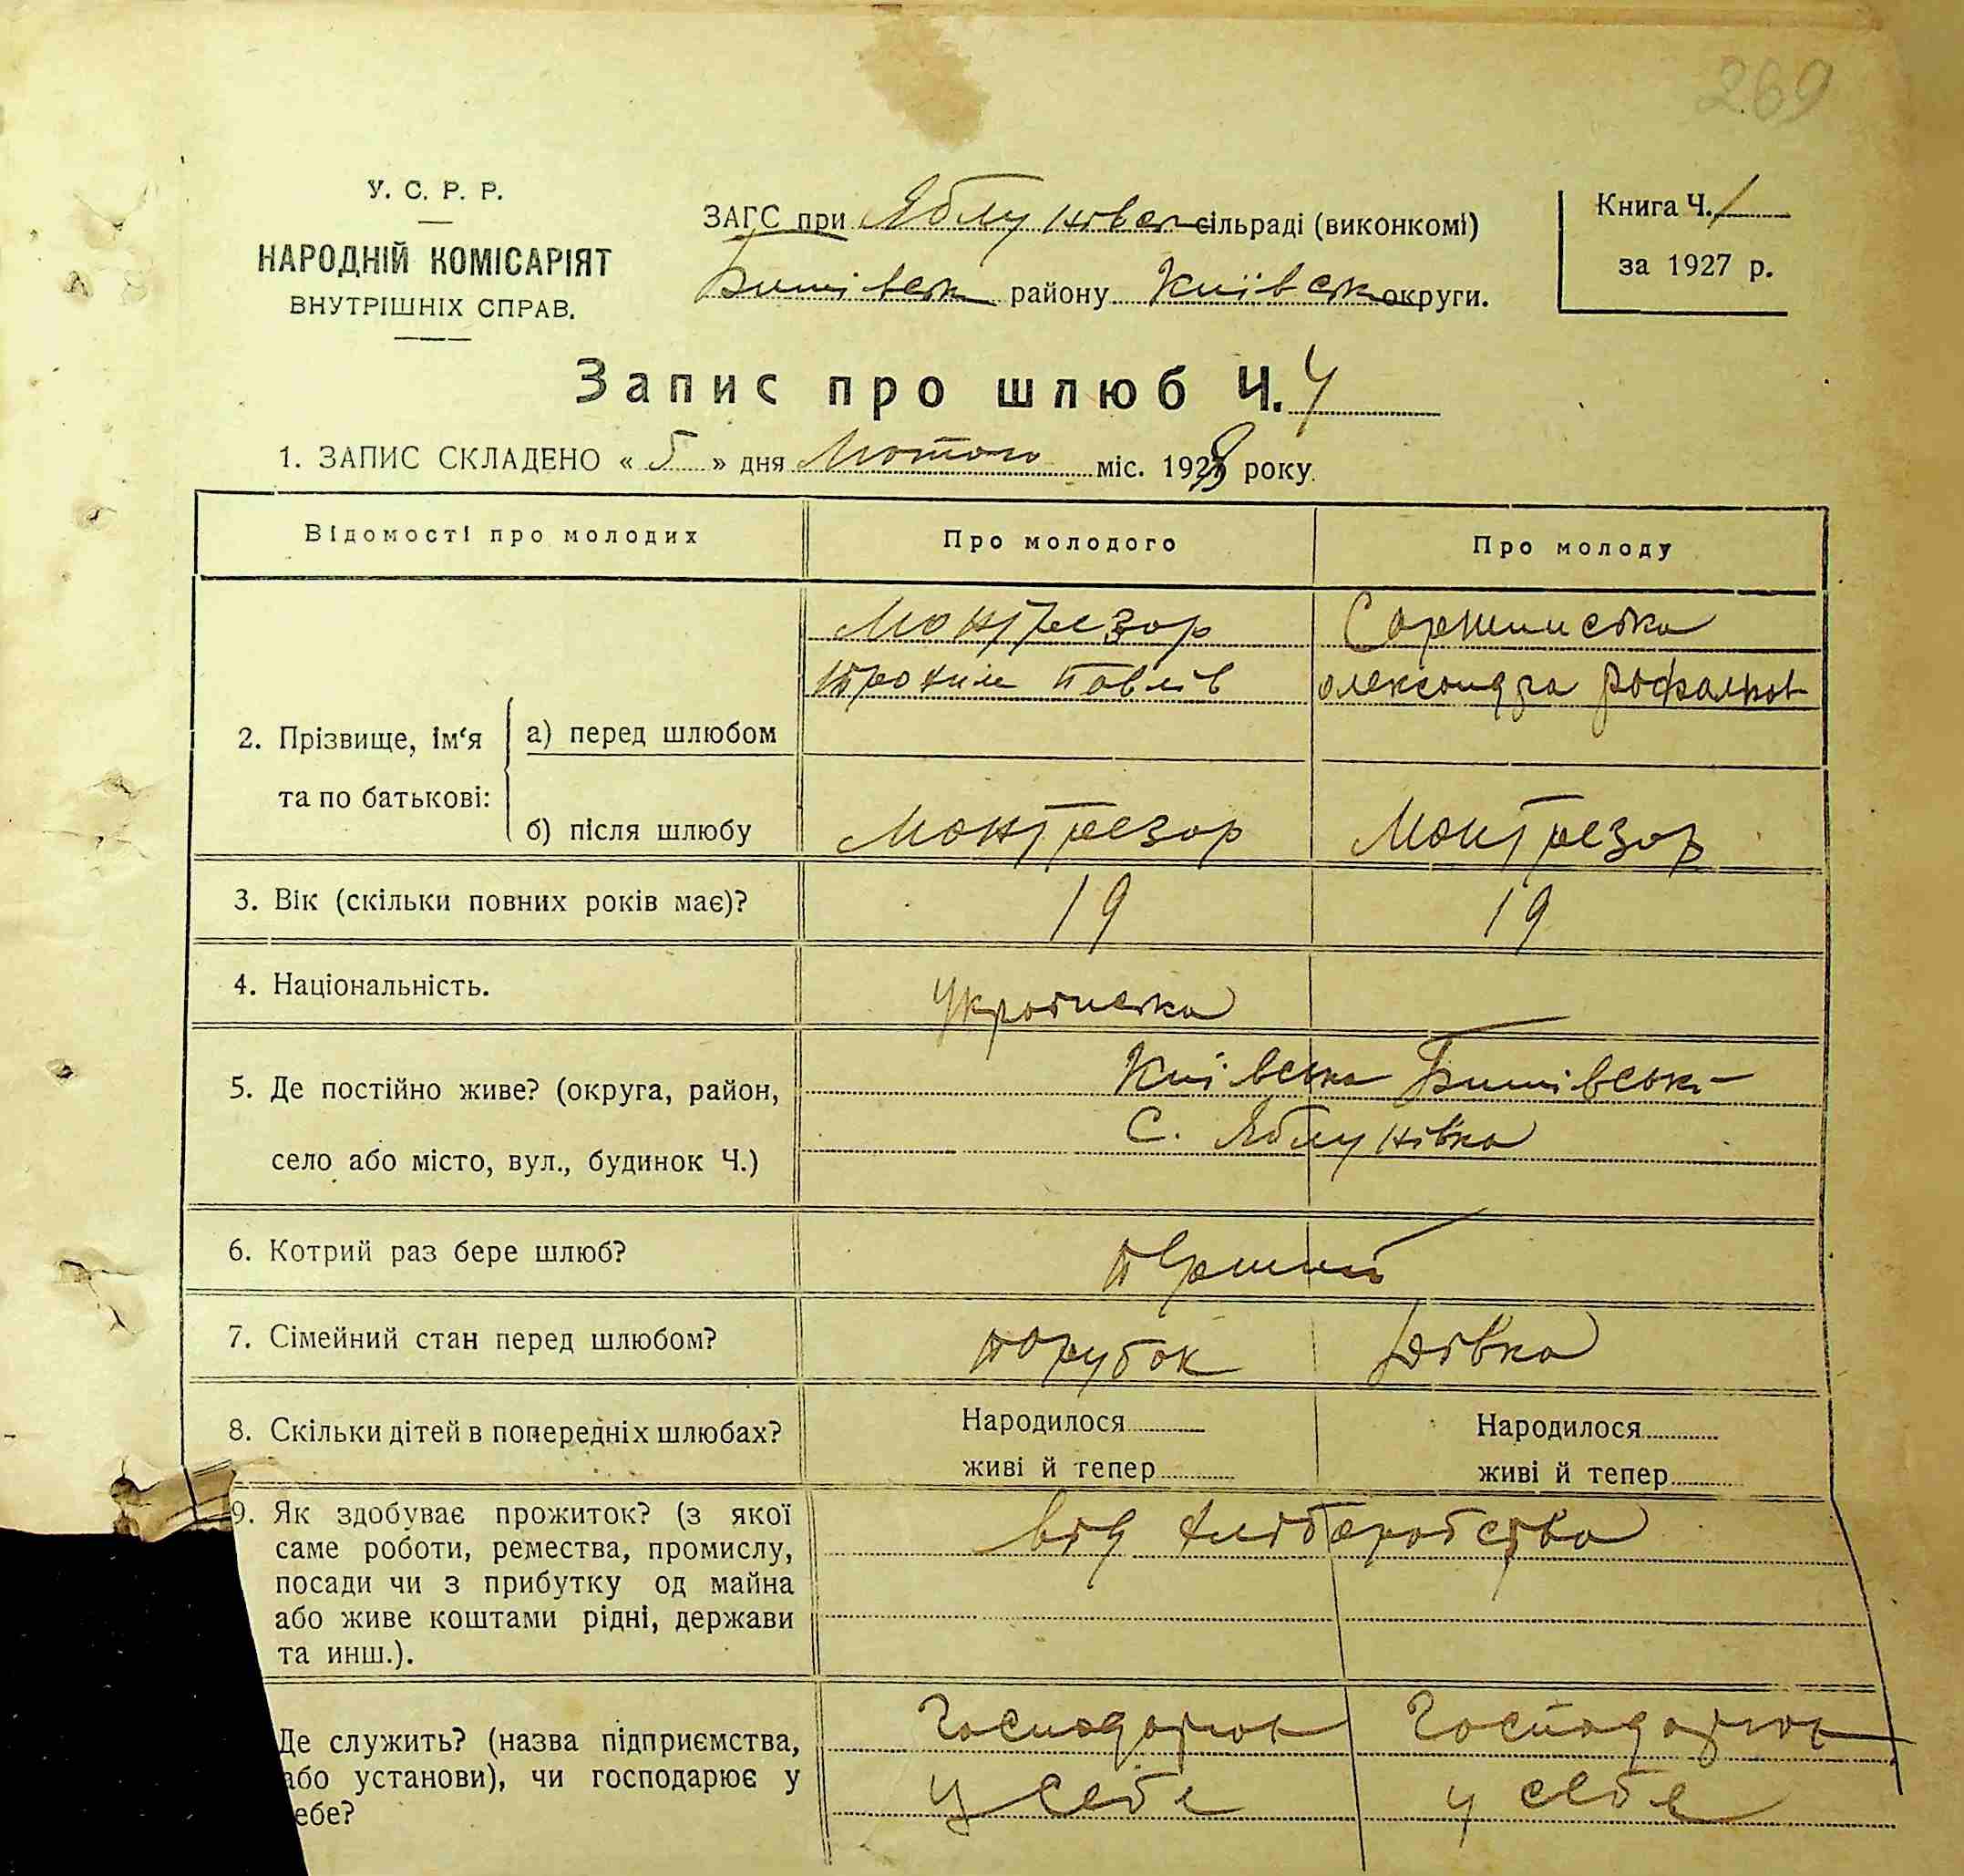 269
У. С. Р. Р.
НАРОДНІЙ КОМІСАРІЯТ
ВНУТРІШНІХ СПРАВ.
ЗАГС при Яблунівск сільраді (виконкомі)
Бишівськ району Київськ округи.
Книга Ч. 1
за 1927 р.
Запис про шлюб Ч. 4
1. ЗАПИС СКЛАДЕНО « 5 » дня Лютого міс. 1928 року.
Відомості про молодих
Про молодого
Про молоду
2. Прізвище, ім'я та по батькові:
а) перед шлюбом
Монтрезор
Трохим Павлів
олександра
б) після шлюбу
Монтрезор
Монтрезор
3. Вік (скільки повних років має)?
19
19
4. Національність.
Українська
5. Де постійно живе? (округа, район,
село або місто, вул., будинок Ч.)
Київська Бишівськ
С. Яблунівка
6. Котрий раз бере шлюб?
Перший
7. Сімейний стан перед шлюбом?
парубок
дівка
8. Скільки дітей в попередніх шлюбах?
Народилося
живі й тепер
Народилося
живі й тепер
9. Як здобуває прожиток? (з якої
саме роботи, ремества, промислу,
посади чи з прибутку од майна
або живе коштами рідні, держави
та инш.).
від хліборобства
Де служить? (назва підприємства,
або установи), чи господарює у
ебе?
Господарює
у себе
Господарює
у себе